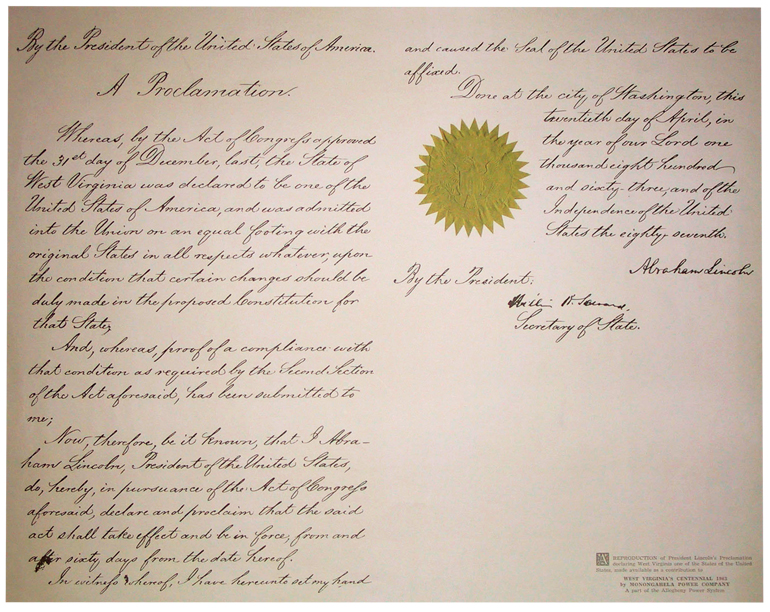 By the President of the United States of America.
A Proclamation.
Whereas, by the Act of Congress approved
the 31st day of December, last, the State of
West Virginia was declared to be one of the
United States of America, and was admitted
into the Union on an equal footing with the
original States in all respects whatever, upon
the condition that certain changes should be
duly made in the proposed Constitution for
that State;
And, whereas, proof of a compliance with
that condition as required by the Second Section
of the Act aforesaid, has been submitted to
me;
Now, therefore, be it known, that I Abra-
ham Lincoln, President of the United States,
do, hereby, in pursuance of the Act of Congress
aforesaid, declare and proclaim that the said
act shall take effect and be in force, from and
after sixty days from the date hereof.
In witness whereof, I have hereunto set my hand
and caused the Seal of the United States to be
affixed.
Done at the city of Washington, this
twentieth day of April, in
the year of our Lord one
thousand eight hundred
and sixty-three, and of the
Independence of the United
States the eighty-seventh.
Abraham Lincoln
By the President:
William H. Seward.
Secretary of State.
REPRODUCTION of President Lincoln's Proclamation
declaring West Virginia one of the States of the United
States, made available as a contribution to
WEST VIRGINIA'S CENTENNIAL 1963
by MONONGAHELA POWER COMPANY
A part of the Allegheny Power System